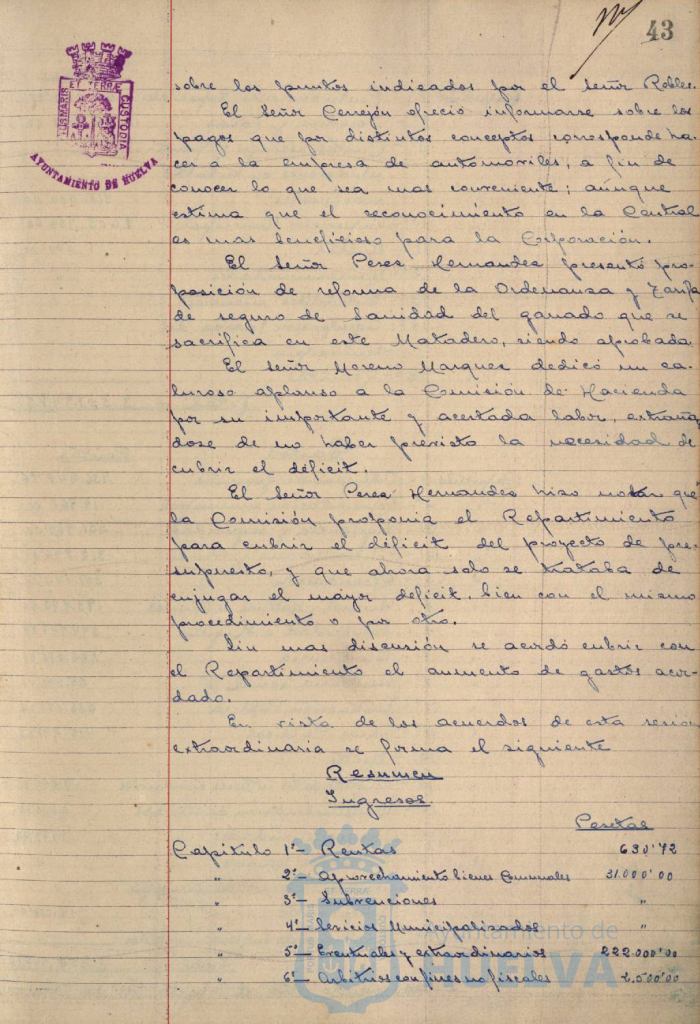 43
PORTUS MARIS ET TERRÆ CUSTODIA
AYUNTAMIENTO DE HUELVA
sobre los puntos indicados por el señor Robles.
El Señor Cerrejón ofreció informarse sobre los
pagos que por distintos conceptos corresponde ha-
cer a la empresa de automoviles, a fin de
conocer lo que sea mas conveniente; aúnque
estima que el reconocimiento en la Central
es mas beneficioso para la Corporación.
El Señor Perez Hernandez presentó pro-
posición de reforma de la Ordenanza y Tarifa
de seguro de Sanidad del ganado que se
sacrifica en este Matadero, siendo aprobada.
El Señor Moreno Marquez dedicó un ca-
luroso aplauso a la Comisión de Hacienda
por su importante y acertada labor, extrañan
dose de no haber previsto la necesidad de
cubrir el déficit.
El Señor Perez Hernandez hizo notar que
la Comisión proponia el Repartimiento
para cubrir el déficit del proyecto de pre-
supuesto, y que ahora solo se trataba de
enjugar el mayor deficit, bien con el mismo
procedimiento o por otro.
Sin mas discusión se acordó cubrir con
el Repartimiento el aumento de gastos acor-
dado.
En vista de los acuerdos de esta sesión
extraordinaria se forma el siguiente
Resumen
Ingresos
Pesetas
Capitulo 1º- Rentas 630'72
" 2º- Aprovechamiento bienes Comunales 31.000'00
" 3º- Subvenciones "
" 4º- Servicios Municipalizados "
" 5º- Eventuales y extraordinarios 222.000'00
" 6º- Arbitrios con fines no fiscales 2.500'00
Ayuntamiento de
HUELVA